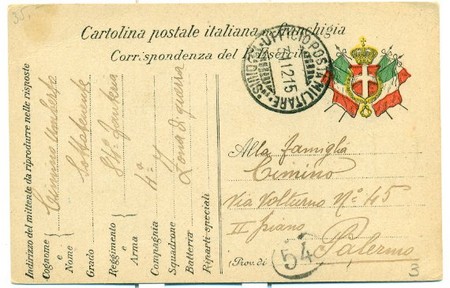 35.-
Cartolina postale italiana in franchigia
Corrispondenza del R. Esercito
UFFICIO POSTA MILITARE
12.15
Alla famiglia
Cimino
Via Volturno N° 45
II piano
Palermo
(Prov. di
54
3
Indirizzo del mittente da riprodurre nelle risposte
Cognome e Nome
Cimino Umberto
Grado
Reggimento e Arma
Fanteria
Compagnia
4ª
Squadrone
Batteria
Zona di guerra
Riparti speciali